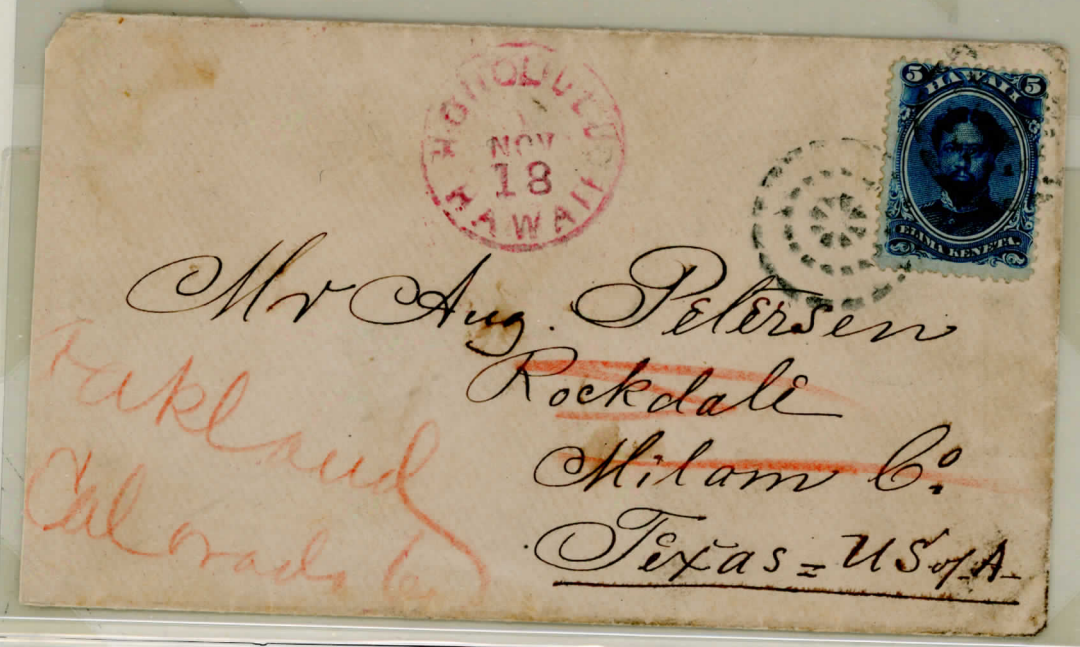 HONOLULU
NOV
18
HAWAII
5 5
HAWAII
ELIMA KENETA.
Mr Aug. Petersen
Rockdale
Milam Co.
Texas = US of A-
Oakland
Colorado Co